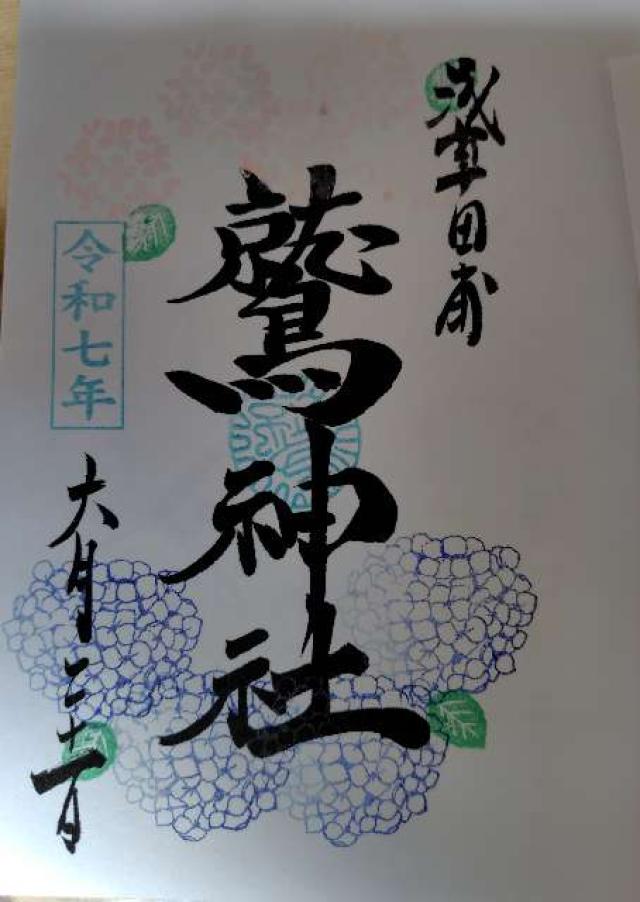 浅草田甫
鷲神社
令和七年
六月二十一日